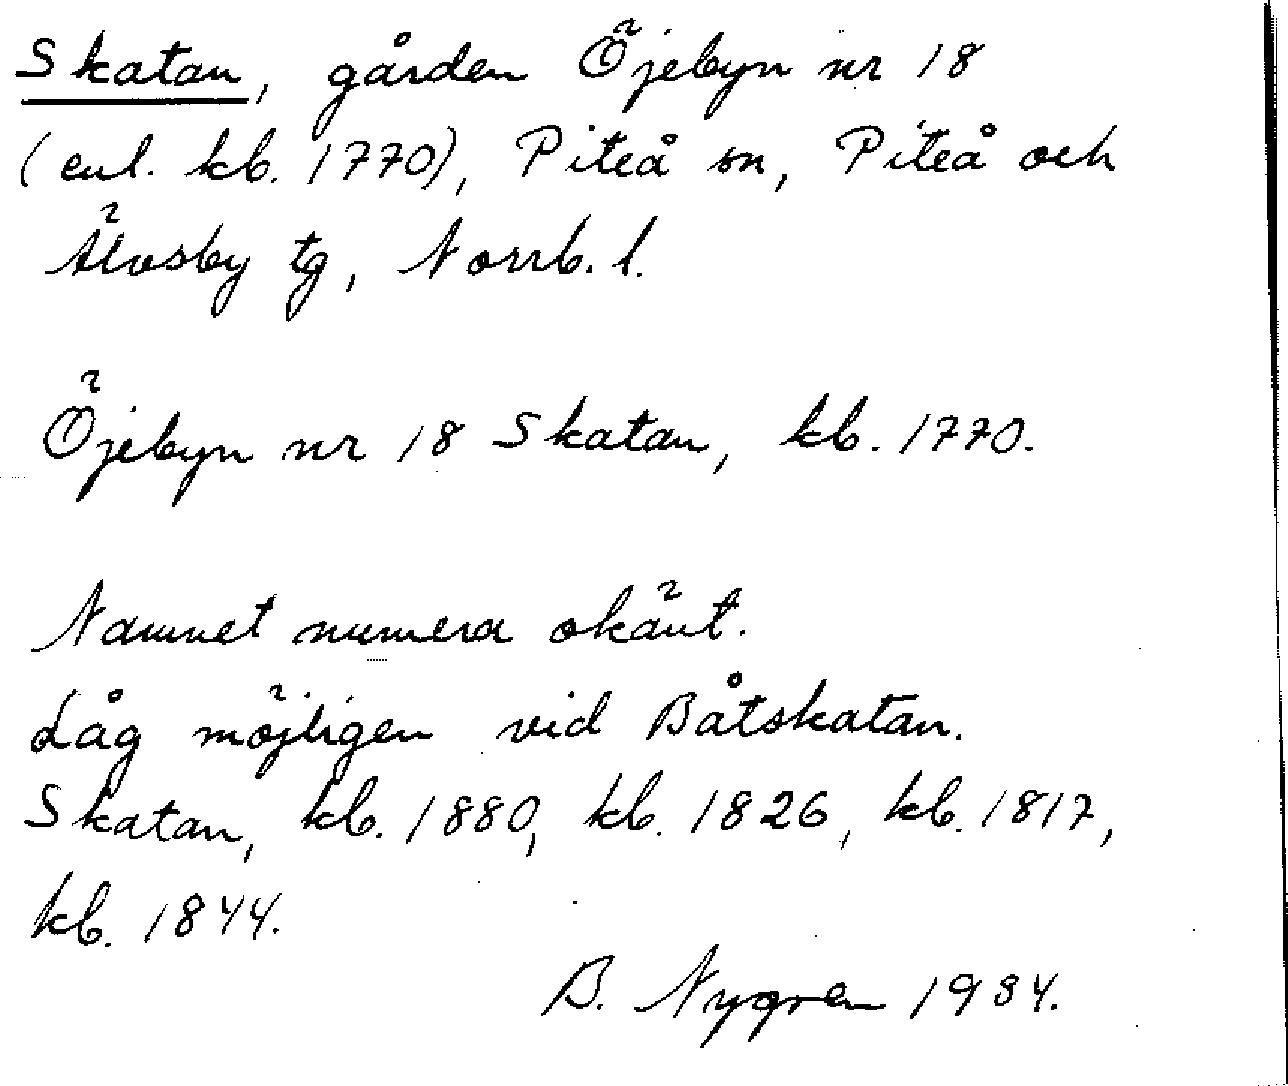 Skatan, gården Öjebyn nr 18
(enl. kb. 1770), Piteå sn, Piteå och
Älvsby tg, Norrb. l.
Öjebyn nr 18 Skatan, kb. 1770.
Namnet numera okänt.
Låg möjligen vid Båtskatan.
Skatan, kb. 1880, kb. 1826, kb. 1817,
kb. 1844.
B. Nygren 1934.